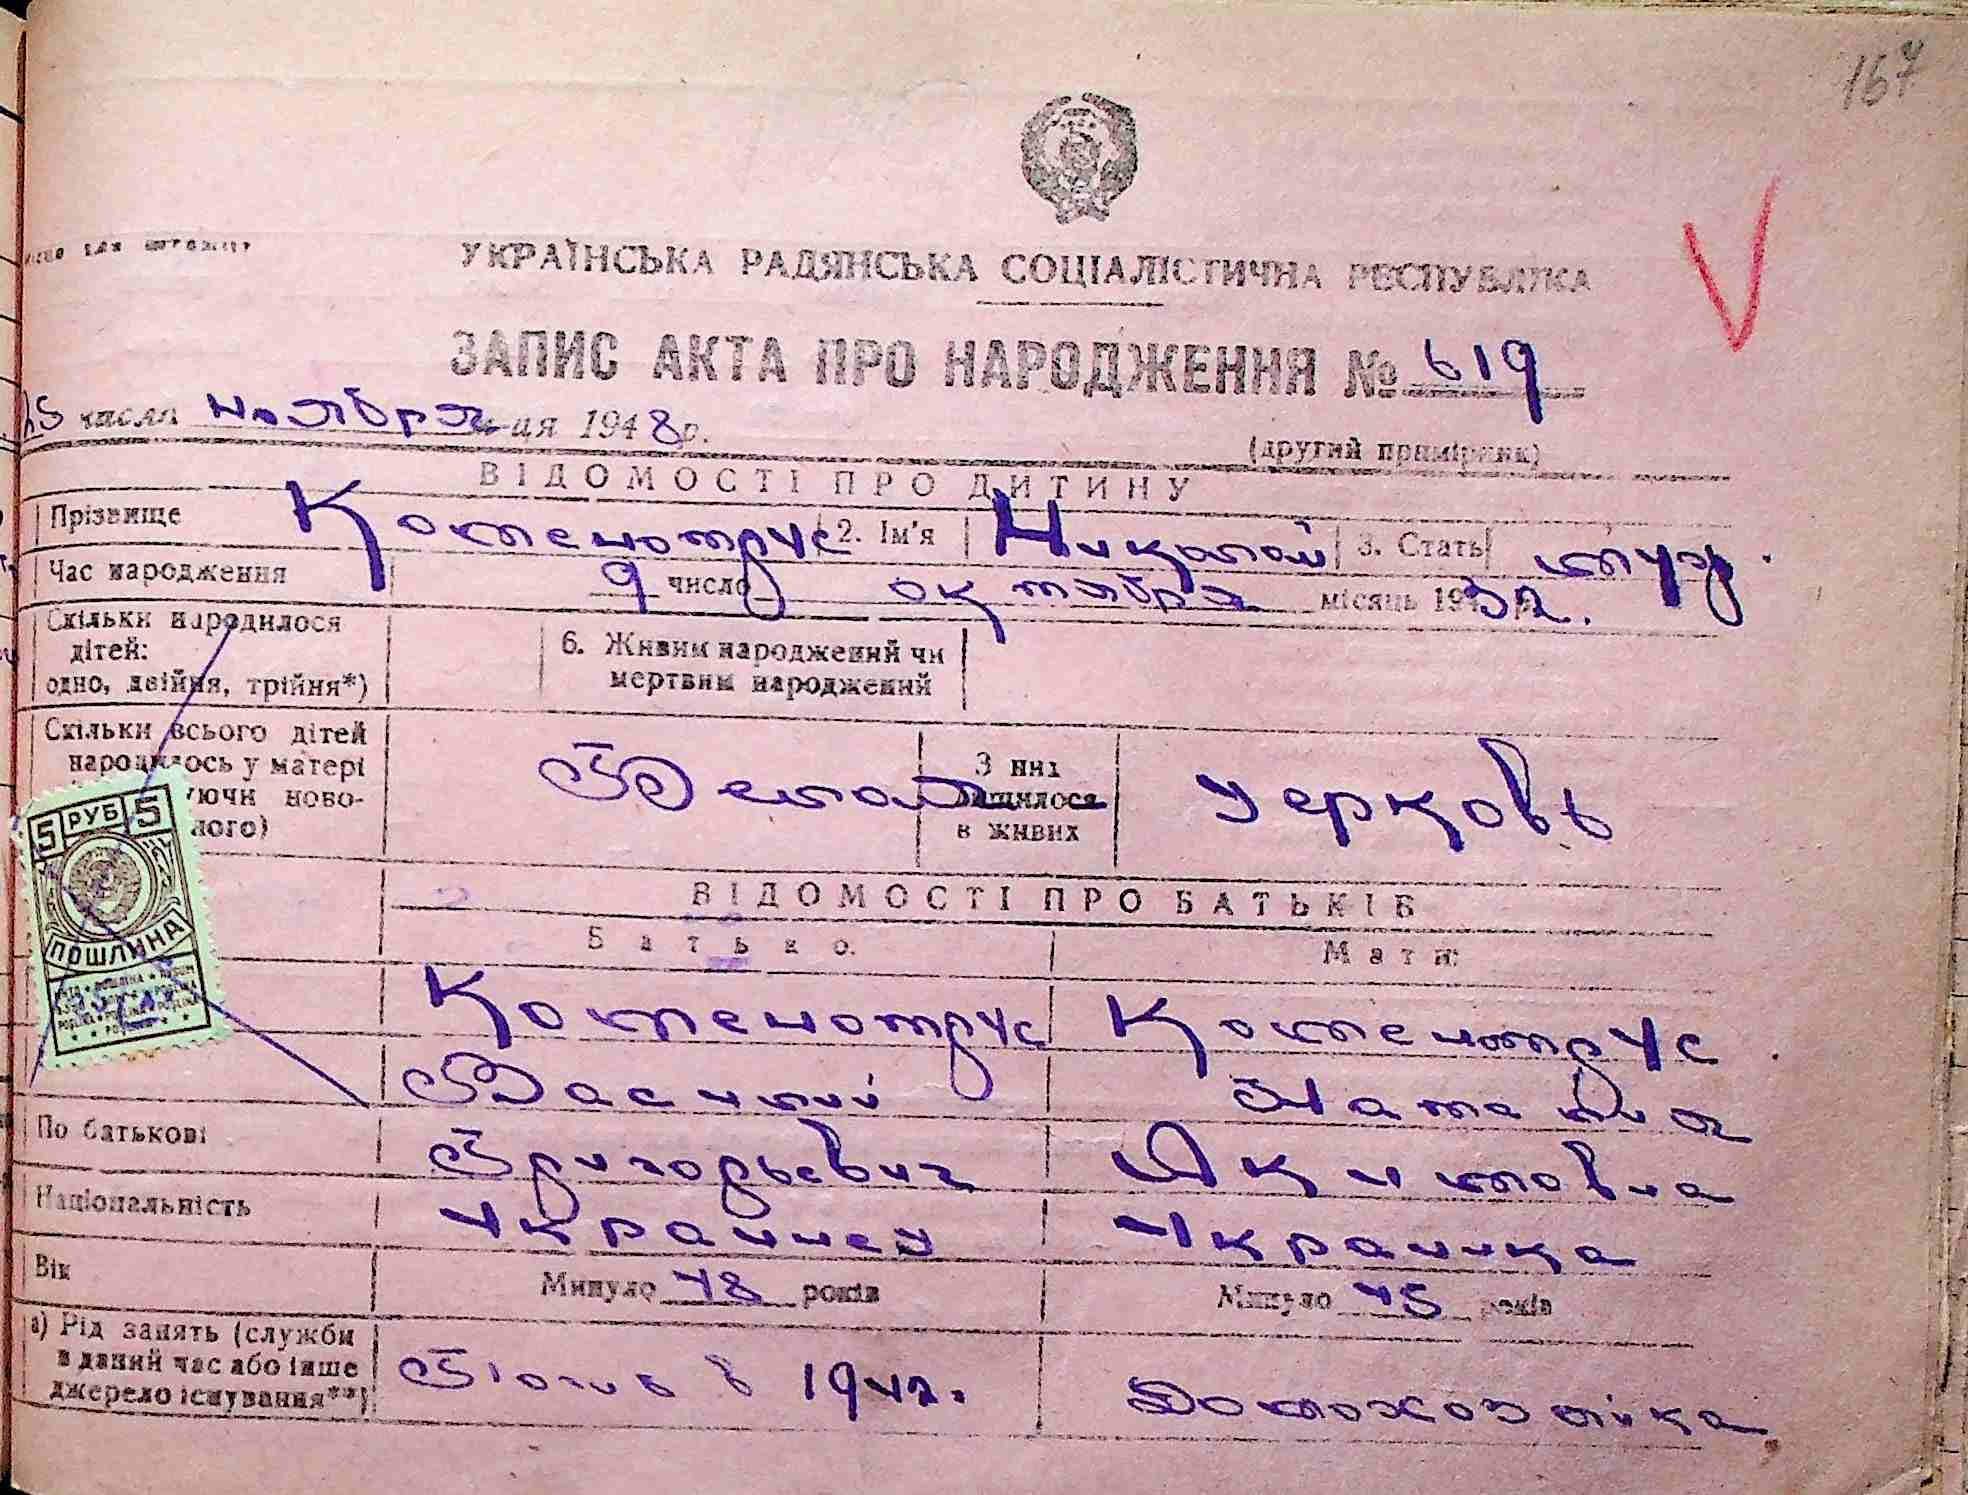 167
УКРАЇНСЬКА РАДЯНСЬКА СОЦІАЛІСТИЧНА РЕСПУБЛІКА
ЗАПИС АКТА ПРО НАРОДЖЕННЯ № 619
25 числа ноября м-ця 1948 р.
(другий примірник)
ВІДОМОСТІ ПРО ДИТИНУ
Прізвище Костенотрус 2. Ім'я Николай 3. Стать муж.
Час народження 9 число октября місяць 1932.
Скільки народилося дітей: одно, двійня, трійня*)
6. Живим народжений чи мертвим народжений
Скільки всього дітей народилось у матері
З них лишилося в живих
церковь
5 РУБ 5
ПОШЛИНА
ВІДОМОСТІ ПРО БАТЬКІВ
Батько: Мати:
Костенотрус Костенотрус
Василий Наталия
По батькові Григорьевич Якимовна
Національність Украинец Украинка
Вік Минуло 48 років Минуло 45 років
а) Рід занять (служби в даний час або інше джерело існування**)
Погиб в 1942. Домохозяйка